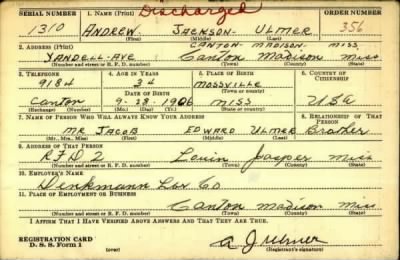 SERIAL NUMBER 1. NAME (Print) Discharged ORDER NUMBER
1310 ANDREW JACKSON - ULMER 356
(First) (Middle) (Last)
2. ADDRESS (Print) CANTON - MADISON - MISS.
YANDELL-AVE Canton Madison Miss
(Number and street or R. F. D. number) (Town) (County) (State)
3. TELEPHONE 4. AGE IN YEARS 5. PLACE OF BIRTH 6. COUNTRY OF CITIZENSHIP
9184 34 MOSSVILLE
DATE OF BIRTH (Town or county)
Canton 9-28-1906 MISS USA
(Exchange) (Number) (Mo.) (Day) (Yr.) (State or country)
7. NAME OF PERSON WHO WILL ALWAYS KNOW YOUR ADDRESS 8. RELATIONSHIP OF THAT PERSON
MR JACOB EDWARD ULMER Brother
(Mr., Mrs., Miss) (First) (Middle) (Last)
9. ADDRESS OF THAT PERSON
RFD 2 Louin Jasper Miss
(Number and street or R. F. D. number) (Town) (County) (State)
10. EMPLOYER'S NAME
Dinkmann Lbr Co
11. PLACE OF EMPLOYMENT OR BUSINESS
Canton Madison Miss
(Number and street or R. F. D. number) (Town) (County) (State)
I AFFIRM THAT I HAVE VERIFIED ABOVE ANSWERS AND THAT THEY ARE TRUE.
REGISTRATION CARD
D. S. S. Form 1 (over) A J Ulmer
(Registrant's signature)